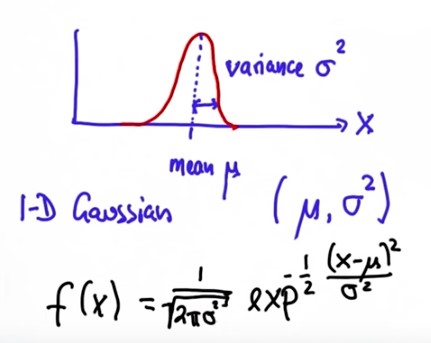 variance σ²
x
mean μ
1-D Gaussian (μ, σ²)
f(x) = 1/√(2πσ²) exp^(-1/2 (x-μ)²/σ²)